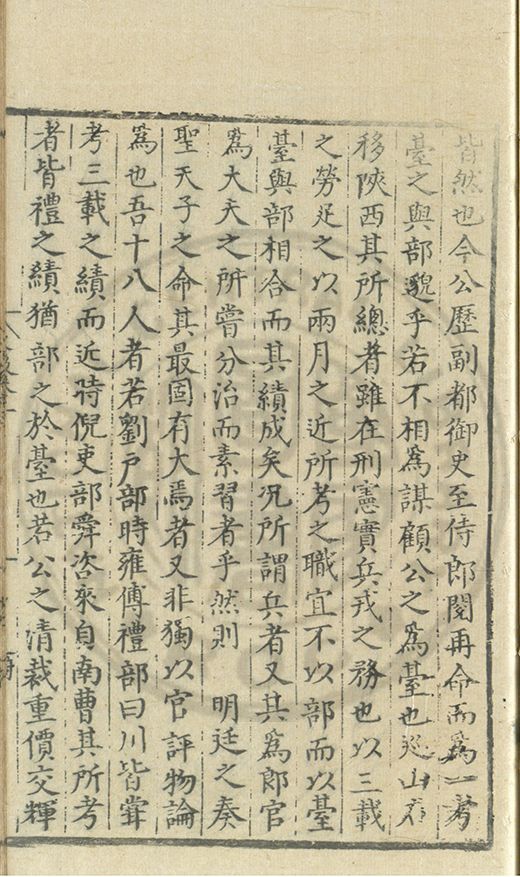 皆然也今公歷副都御史至侍郎閱再命而爲一考
臺之與部邈乎若不相爲謀顧公之爲臺也巡山
移陝西其所總者雖在刑憲實兵戎之務也以三載
之勞足之以兩月之近所考之職宜不以部而以臺
臺與部相合而其績成矣况所謂兵者又其爲郎官
爲大夫之所嘗分治而素習者乎然則 明廷之奏
聖天子之命其最固有大焉者又非獨以官評物論
爲也吾十八人者若劉戶部時雍傅禮部曰川皆嘗
考三載之績而近時倪吏部舜咨來自南曹其所考
者皆禮之績猶部之於臺也若公之清裁重價交輝